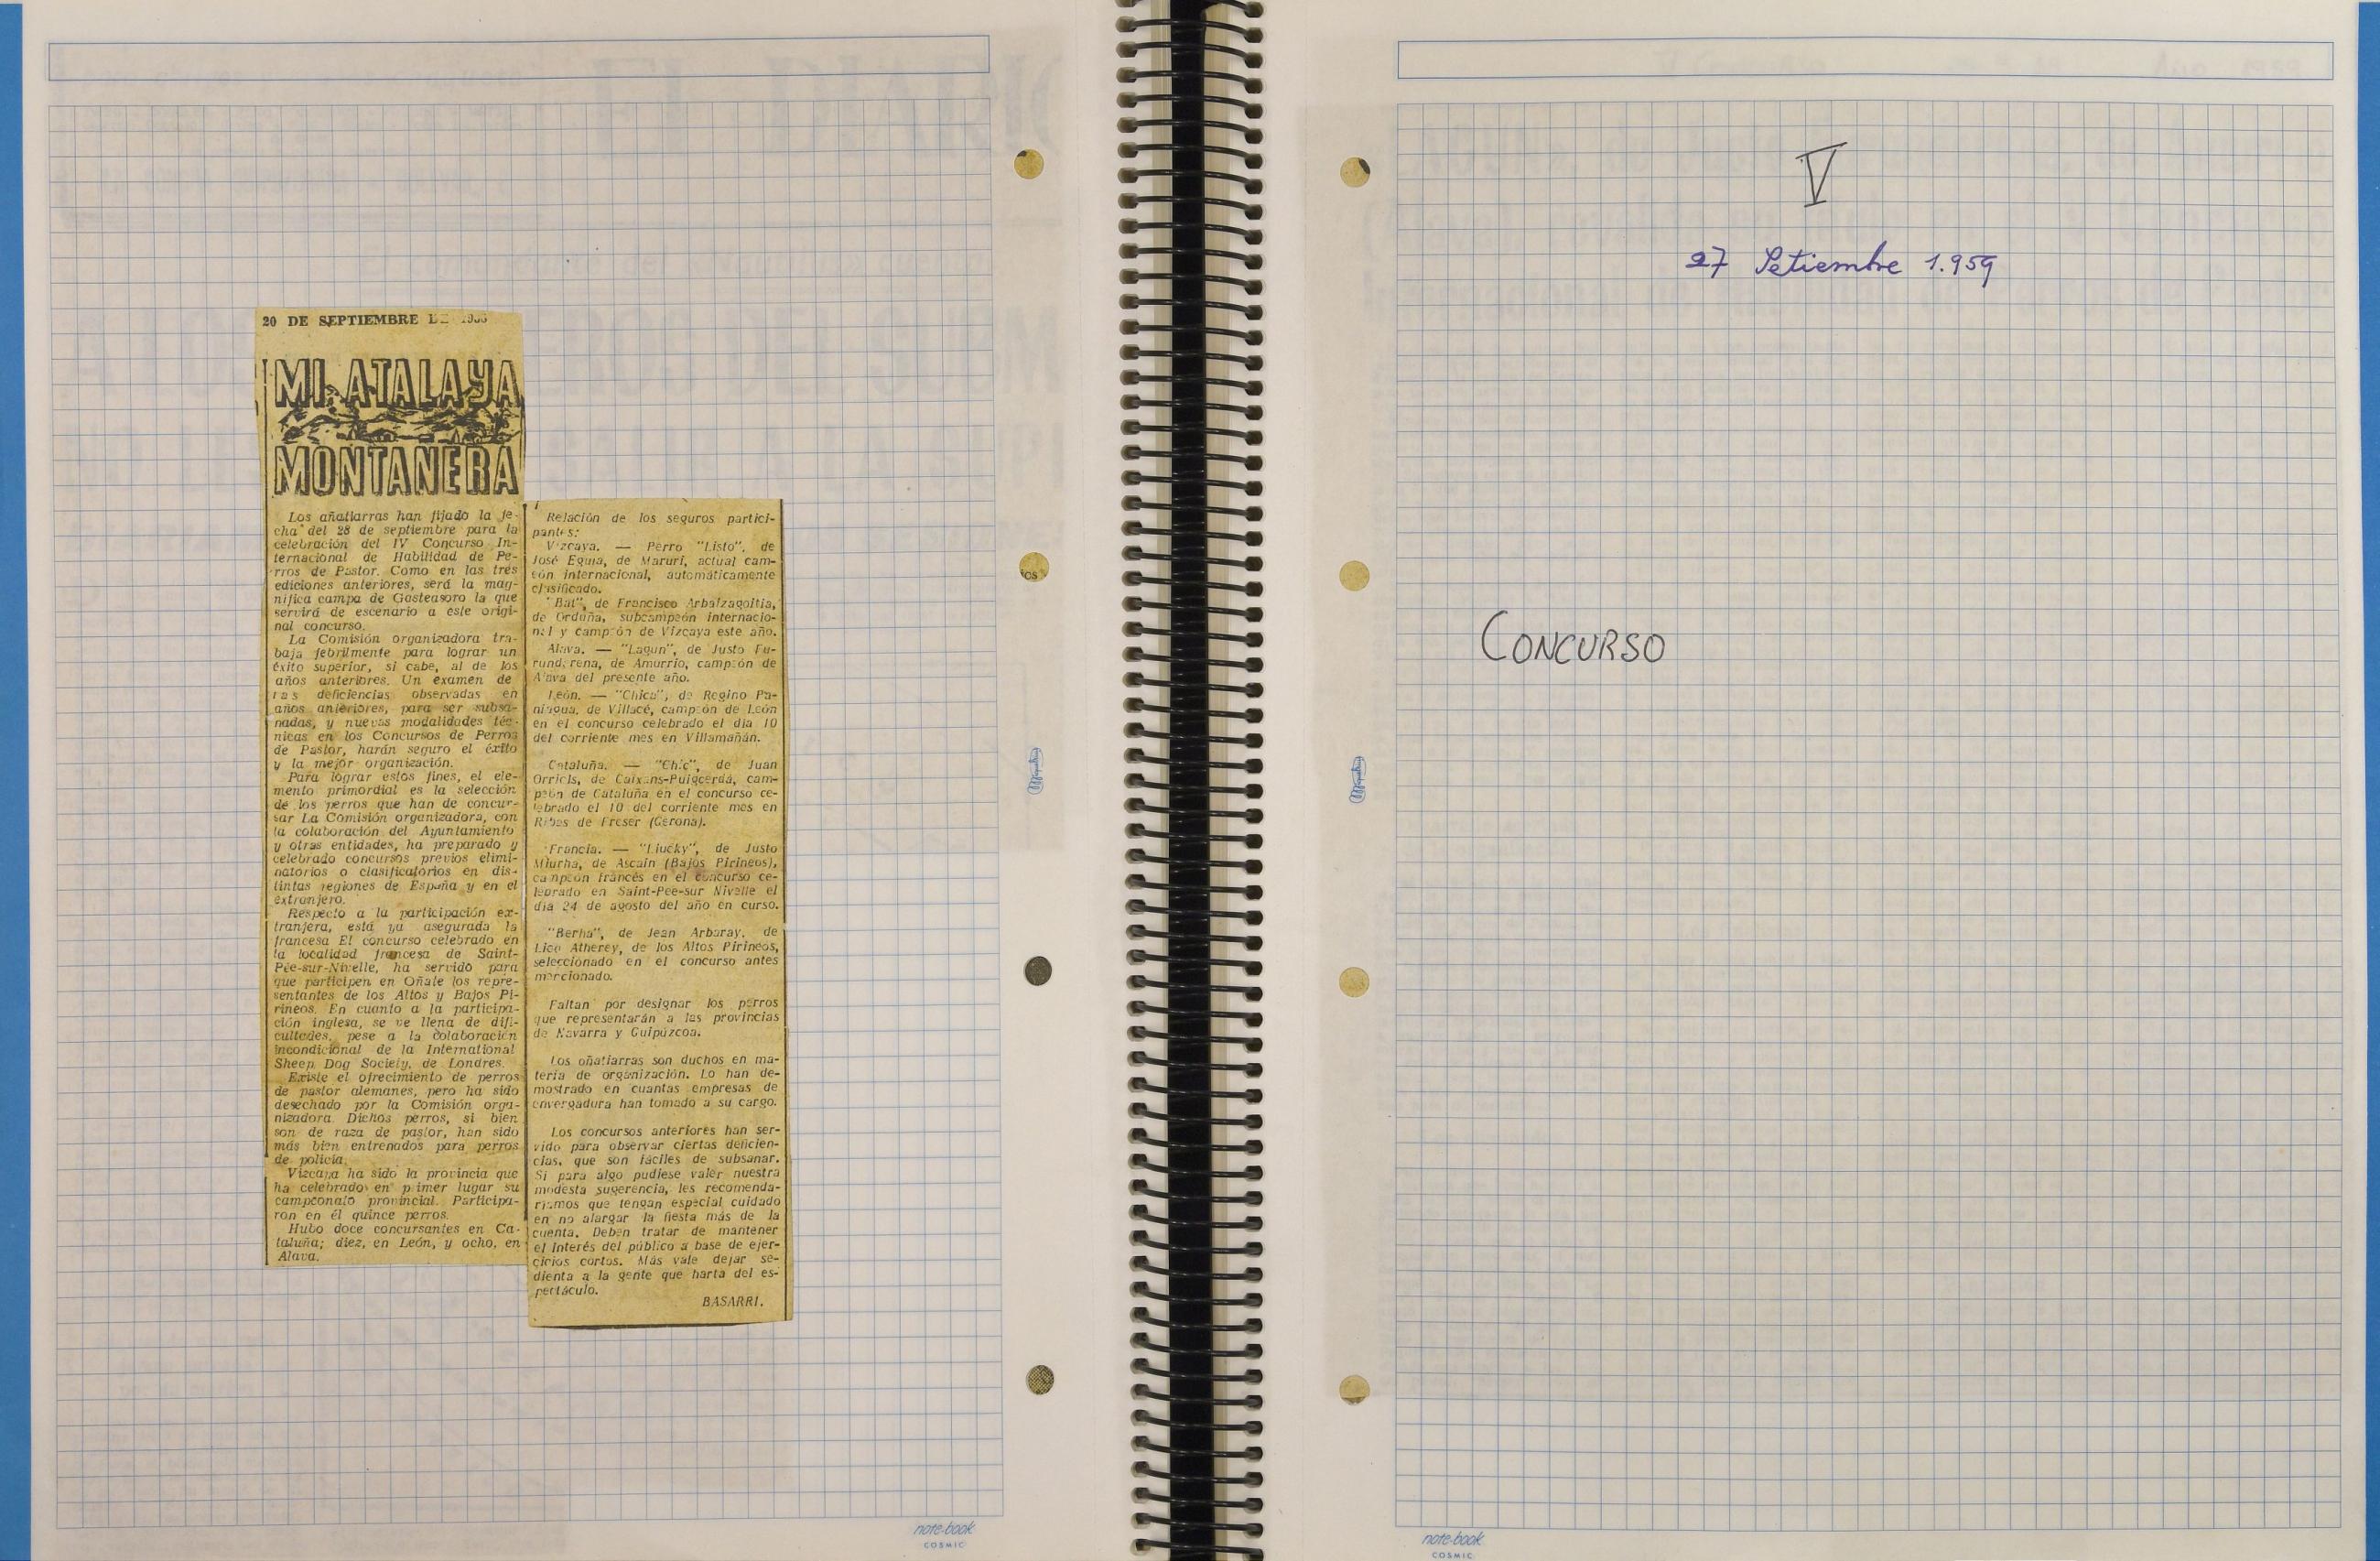 20 DE SEPTIEMBRE DE
MI ATALAYA
MONTAÑERA
Los añatiarras han fijado la fe-
cha del 28 de septiembre para la
celebración del IV Concurso In-
ternacional de Habilidad de Pe-
rros de Pastor. Como en las tres
ediciones anteriores, será la mag-
nífica campa de Gasteasoro la que
servirá de escenario a este origi-
nal concurso.
La Comisión organizadora tra-
baja febrilmente para lograr un
éxito superior, si cabe, al de los
años anteriores. Un examen de
las deficiencias observadas en
años anteriores, para ser subsa-
nadas, y nuevas modalidades téc-
nicas en los Concursos de Perros
de Pastor, harán seguro el éxito
y la mejor organización.
Para lograr estos fines, el ele-
mento primordial es la selección
de los perros que han de concur-
sar La Comisión organizadora, con
la colaboración del Ayuntamiento
y otras entidades, ha preparado y
celebrado concursos previos elimi-
natorios o clasificatorios en dis-
tintas regiones de España y en el
extranjero.
Respecto a la participación ex-
tranjera, está ya asegurada la
francesa El concurso celebrado en
la localidad francesa de Saint-
Pée-sur-Nivelle, ha servido para
que participen en Oñate los repre-
sentantes de los Altos y Bajos Pi-
rineos. En cuanto a la participa-
ción inglesa, se ve llena de difi-
cultades, pese a la colaboración
incondicional de la International
Sheep Dog Society, de Londres.
Existe el ofrecimiento de perros
de pastor alemanes, pero ha sido
desechado por la Comisión orga-
nizadora. Dichos perros, si bien
son de raza de pastor, han sido
más bien entrenados para perros
de policía.
Vizcaya ha sido la provincia que
ha celebrado en primer lugar su
campeonato provincial. Participa-
ron en él quince perros.
Hubo doce concursantes en Ca-
taluña; diez, en León, y ocho, en
Alava.
Relación de los seguros partici-
pantes:
Vizcaya. — Perro "Listo", de
José Eguía, de Maruri, actual cam-
eón internacional, automáticamente
clasificado.
"Bat", de Francisco Arbaizagoitia,
de Orduña, subcampeón internacio-
nal y campeón de Vizcaya este año.
Alava. — "Lagun", de Justo Fu-
rundarena, de Amurrio, campeón de
Alava del presente año.
León. — "Chica", de Regino Pa-
niagua, de Villacé, campeón de León
en el concurso celebrado el día 10
del corriente mes en Villamañán.
Cataluña. — "Chic", de Juan
Orriols, de Caixans-Puigcerdá, cam-
peón de Cataluña en el concurso ce-
lebrado el 10 del corriente mes en
Ribas de Freser (Gerona).
Francia. — "Llucky", de Justo
Miurha, de Ascain (Bajos Pirineos),
campeón francés en el concurso ce-
lebrado en Saint-Pee-sur Nivelle el
día 24 de agosto del año en curso.
"Berha", de Jean Arbaray, de
Licq Atherey, de los Altos Pirineos,
seleccionado en el concurso antes
mercionado.
Faltan por designar los perros
que representarán a las provincias
de Navarra y Guipúzcoa.
Los oñatiarras son duchos en ma-
teria de organización. Lo han de-
mostrado en cuantas empresas de
envergadura han tomado a su cargo.
Los concursos anteriores han ser-
vido para observar ciertas deficien-
cias, que son fáciles de subsanar.
Si para algo pudiese valer nuestra
modesta sugerencia, les recomenda-
ríamos que tengan especial cuidado
en no alargar la fiesta más de la
cuenta. Deben tratar de mantener
el interés del público a base de ejer-
cicios cortos. Más vale dejar se-
dienta a la gente que harta del es-
pectáculo.
BASARRI.
note-book
COSMIC
V
27 Setiembre 1.959
CONCURSO
note-book
COSMIC